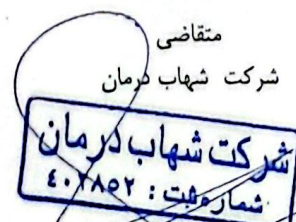 متقاضی
شرکت شهاب درمان
شرکت شهاب درمان
شماره ثبت : ۴۰۲۸۵۲